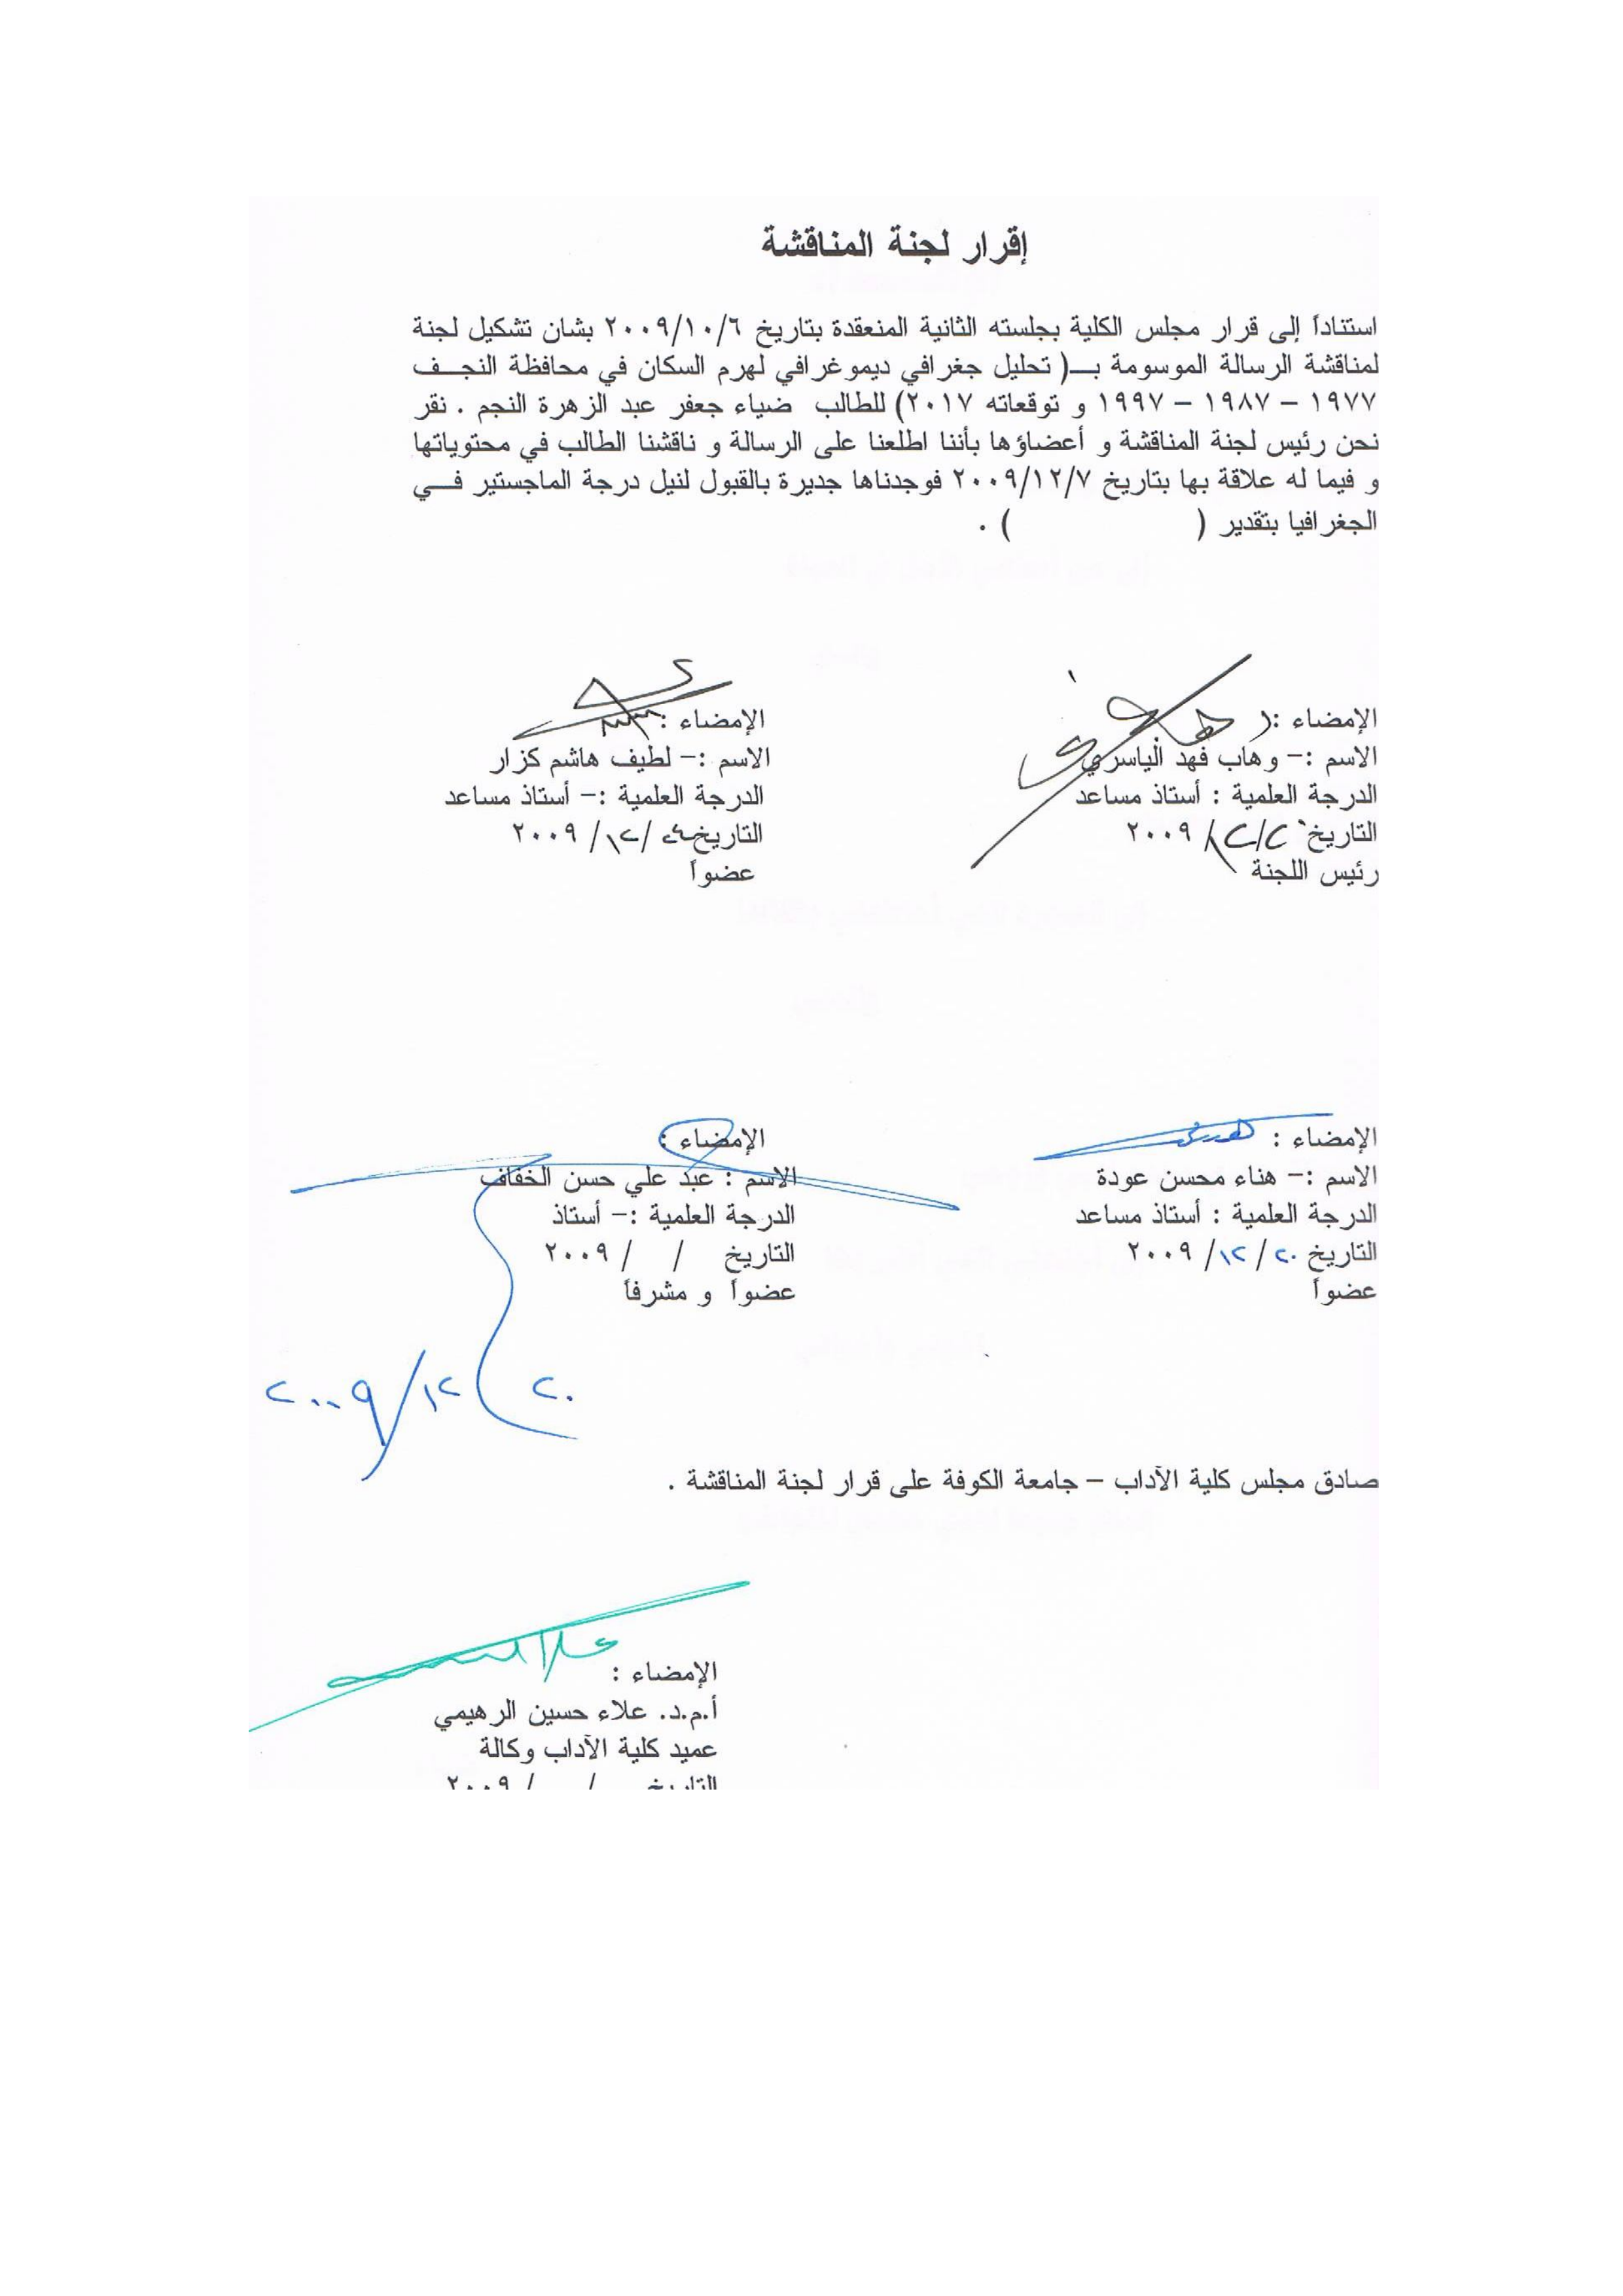 إقرار لجنة المناقشة
استناداً إلى قرار مجلس الكلية بجلسته الثانية المنعقدة بتاريخ ٢٠٠٩/١٠/٦ بشان تشكيل لجنة
لمناقشة الرسالة الموسومة بــ( تحليل جغرافي ديموغرافي لهرم السكان في محافظة النجــف
١٩٧٧ – ١٩٨٧ – ١٩٩٧ و توقعاته ٢٠١٧) للطالب ضياء جعفر عبد الزهرة النجم . نقر
نحن رئيس لجنة المناقشة و أعضاؤها بأننا اطلعنا على الرسالة و ناقشنا الطالب في محتوياتها
و فيما له علاقة بها بتاريخ ٢٠٠٩/١٢/٧ فوجدناها جديرة بالقبول لنيل درجة الماجستير فــي
الجغرافيا بتقدير ( ) .
الإمضاء :
الاسم :– وهاب فهد الياسري
الدرجة العلمية : أستاذ مساعد
التاريخ / ٢٠٠٩
رئيس اللجنة
الإمضاء :
الاسم :– لطيف هاشم كزار
الدرجة العلمية :– أستاذ مساعد
التاريخ /١٢/ ٢٠٠٩
عضواً
الإمضاء :
الاسم :– هناء محسن عودة
الدرجة العلمية : أستاذ مساعد
التاريخ ٢٠ /١٢/ ٢٠٠٩
عضواً
الإمضاء :
الاسم : عبد علي حسن الخفاف
الدرجة العلمية :– أستاذ
التاريخ / / ٢٠٠٩
عضواً و مشرفاً
٢٠ /١٢/ ٢٠٠٩
صادق مجلس كلية الآداب – جامعة الكوفة على قرار لجنة المناقشة .
الإمضاء :
أ.م.د. علاء حسين الرهيمي
عميد كلية الآداب وكالة
التاريخ / / ٢٠٠٩